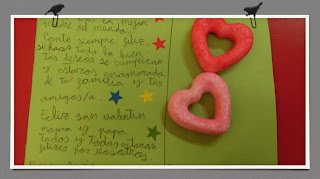 la mejor
madre del mundo.
Ponte siempre feliz,
se hará todo lo bien
Tus deseos se cumplirán
y estarás enamorada
de tu familia y tus
amigos/a.
Feliz san valentin
mama y papa
todos y todas estarán
felices por vosotros